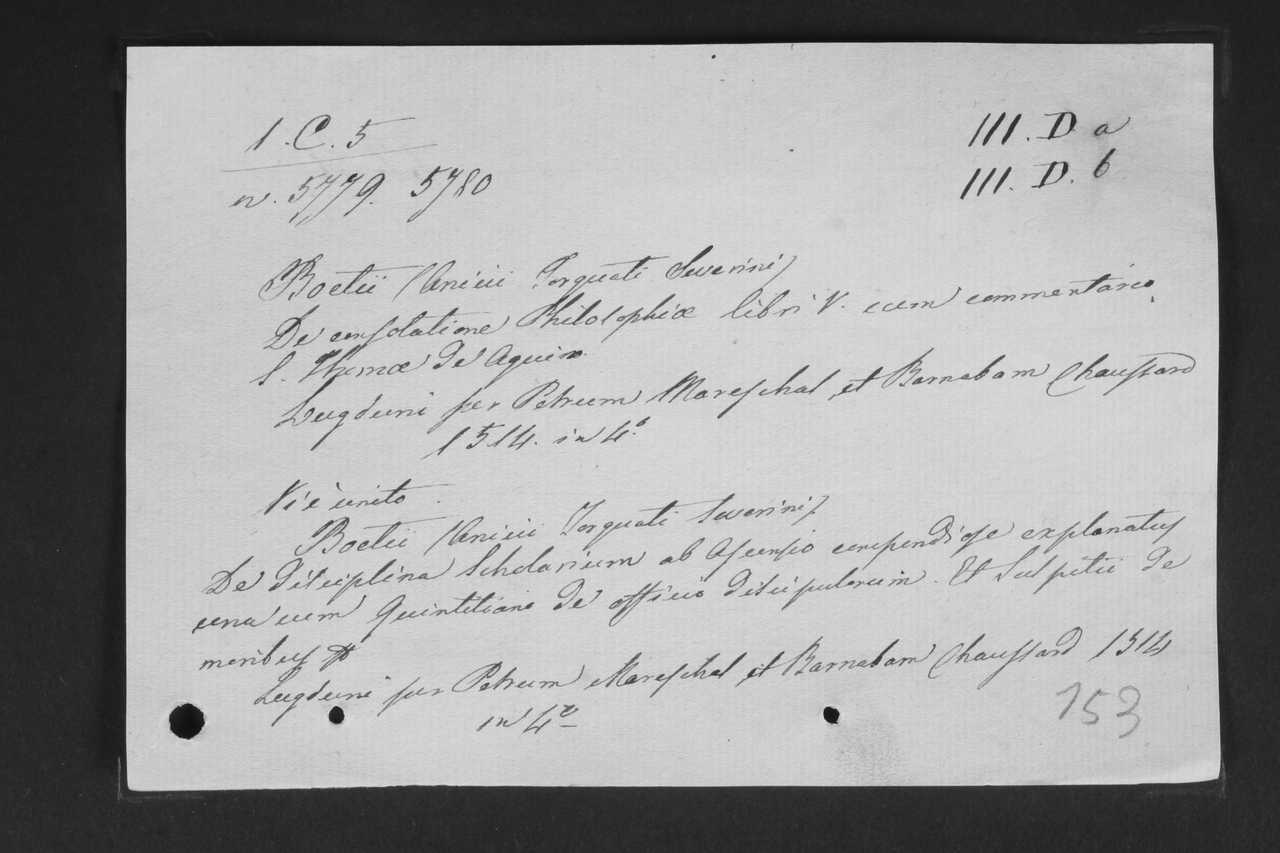 1.C.5
III. D a
n. 5779. 5780
III. D. b
Boetii (Anicii Torquati Severini)
De consolatione Philosophiæ libri V. cum commentario
S. Thomæ de Aquino.
Lugduni per Petrum Mareschal et Barnabam Chaussard
1514. in 4.º
Vi è unito
Boetii (Anicii Torquati Severini)
De disciplina Scholarium ab Ascensio compendiose explanatus
una cum Quintiliano de officio discipulorum. Et Sulpitii de
moribus
Lugduni per Petrum Mareschal et Barnabam Chaussard 1514
in 4º
153